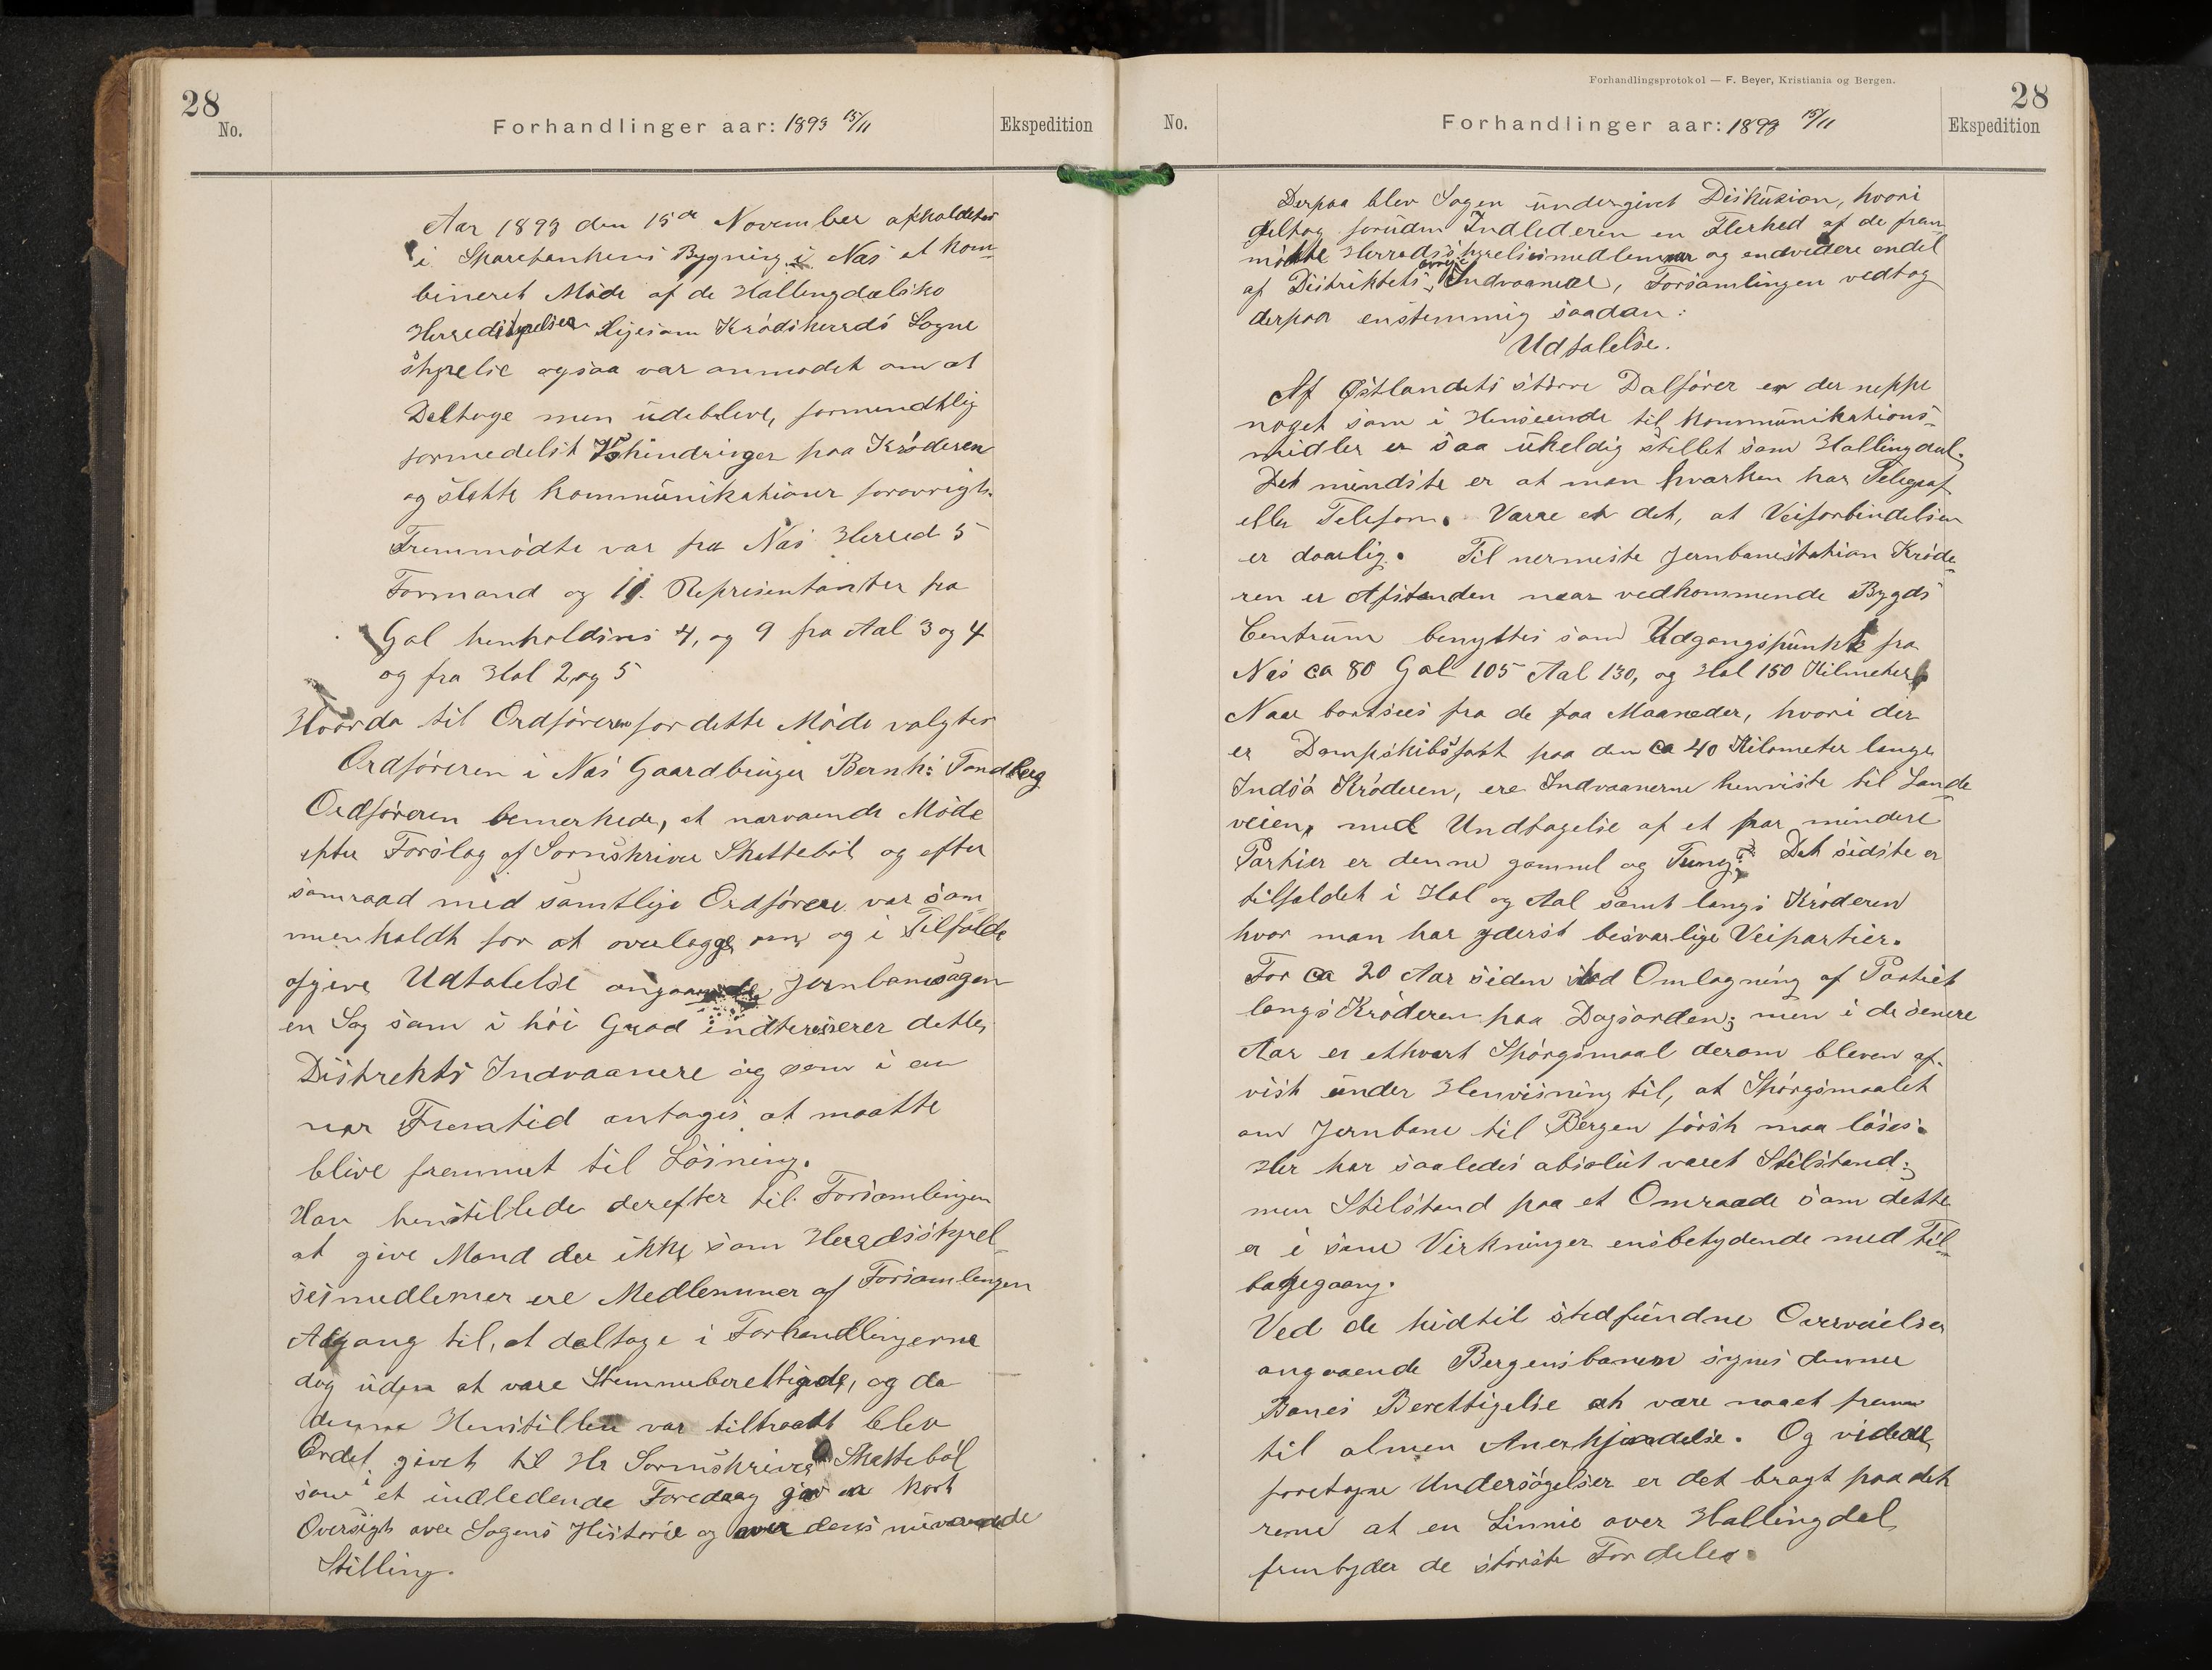 28
No.
Forhandlinger aar: 1893 15/11
Ekspedition
Aar 1893 den 15de November afholdetes
i Sparebankens Bygning i Næs et kom-
bineret Møde af de Hallingdalske
Herredstyrelser ligesom Krødsherreds Sogne
styrelse ogsaa var anmodet om at
Deltage men udebleve, formendtlig
formedelst Ishindringer paa Krøderen
og slette kommunikationer forøvrigt.
Fremmødte var fra Næs Herred 5
Formænd og 11. Represientanter fra
Gol henholdsvis 4, og 9 fra Aal 3 og 4
og fra Hol 2 og 5
Hvorda til Ordføreren for dette Møde valgtes
Ordføreren i Næs Gaardbruger Bernh: Tandberg
Ordføreren bemerkede, at nærværende Møde
efter Forslag af Sorenskriver Skattebøl og efter
samraad med samtlige Ordførere var sam-
menkaldt for at overlægge om og i Tilfælde
afgive Udtalelse angaaende Jernbanesagen
en Sag som i høi Grad indteresserer dette
Distrekts Indvaanere og som i en
nær Fremtid antages at maatte
blive fremmet til Løsning.
Han henstillede derefter til Forsamlingen
at give Mænd der ikke som Herredsstyrel-
sesmedlemer ere Medlemmer af Forsamlingen
Adgang til, at deltage i Forhandlingerne
dog uden at være Stemmeberettigede, og da
denne Henstillen var tiltraadt blev
Ordet givet til Hr Sorenskriver Skattebøl
som i et indledende Foredrag gav en kort
Oversigt over Sagens Historie og over dens nuværende
Stilling.
Forhandlingsprotokol — F. Beyer, Kristiania og Bergen.
28
No.
Forhandlinger aar: 1893 15/11
Ekspedition
Derpaa blev Sagen undergivet Diskusion, hvori
deltog foruden Indlederen en Flerhed af de frem-
mødte Herredsstyrelsesmedlemmer og endvidere endel
af Distriktets øvrige Indvaanere, Forsamlingen vedtog
derpaa enstemmig saadan:
Udtalelse.
Af Østlandets større Dalfører er der neppe
noget som i Henseende til kommunikations-
midler er saa uheldig stillet som Hallingdal.
Det mindste er at man hverken har Telegraf
eller Telefon. Værre er det, at Veiforbindelsen
er daarlig. Til nermeste Jernbanestation Krøde-
ren er Afstanden naar vedkommende Bygds
Centrum benyttes som Udgangspunkt fra
Næs ca 80 Gol 105 Aal 130, og Hol 150 Kilmeter
Naar bortsees fra de faa Maaneder, hvori der
er Dampskibsfart paa den ca 40 Kilometer lange
Indsø Krøderen, ere Indvaanerne henviste til Lande-
veien, med Undtagelse af et par mindere
Partier er denne gammel og Tung. Det sidste er
tilfældet i Hol og Aal samt langs Krøderen
hvor man har yderst besværlige Veipartier.
For ca 20 Aar siden stod Omlægning af Partiet
langs Krøderen paa Dagsorden; men i de senere
Aar er ethvert Spørgsmaal derom bleven af-
vist under Henvisning til, at Spørgsmaalet
om Jernbane til Bergen først maa løses.
Her har saaledes absolut været Stilstand;
men Stilstand paa et Omraade som dette
er i sine Virkninger ensbetydende med Til-
bagegaang.
Ved de hidtil stedfundne Overveielser
angaaende Bergensbanen synes denne
Banes Berettigelse at være naaet frem
til almen Anerkjendelse. Og videde
foretagne Undersøgelser er det bragt paa det
rene at en Linnie over Hallingdal
frembyder de største Fordeler.